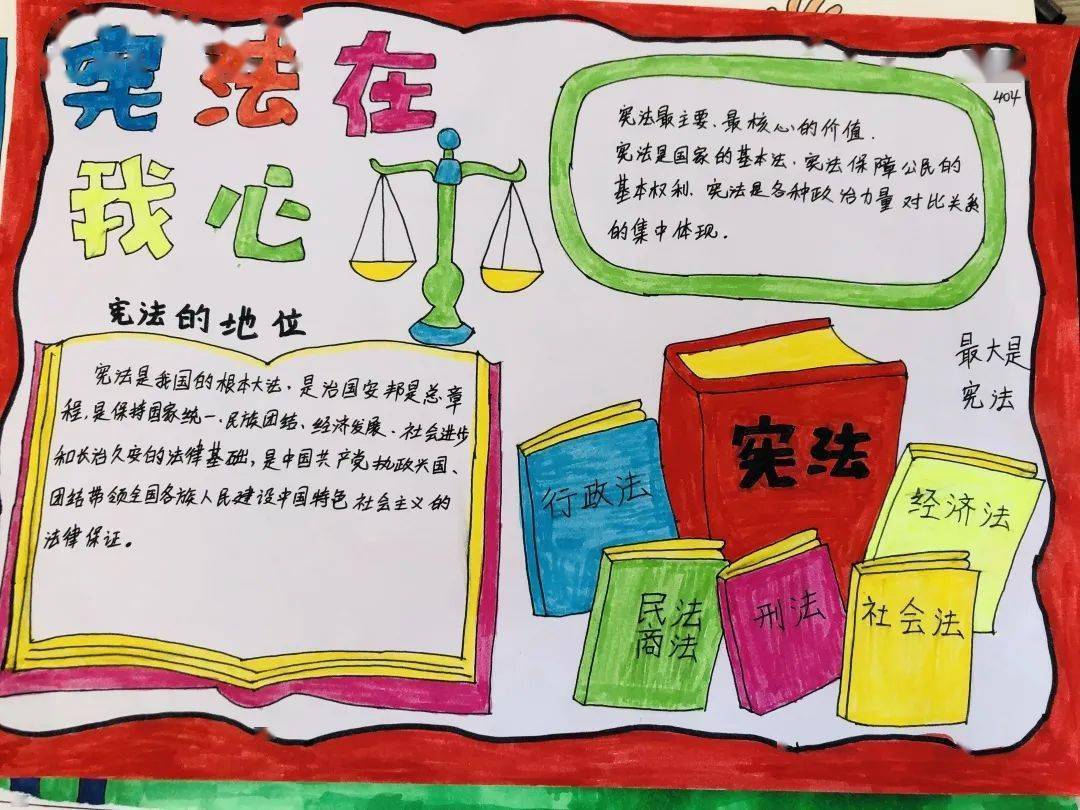 宪法在
我心
404
宪法最主要、最核心的价值.
宪法是国家的基本法、宪法保障公民的
基本权利、宪法是各种政治力量对比关系
的集中体现.
宪法的地位
宪法是我国的根本大法,是治国安邦是总章
程,是保持国家统一、民族团结、经济发展、社会进步
和长治久安的法律基础,是中国共产党执政兴国、
团结带领全国各族人民建设中国特色社会主义的
法律保证。
最大是
宪法
宪法
行政法
经济法
民法
商法
刑法
社会法